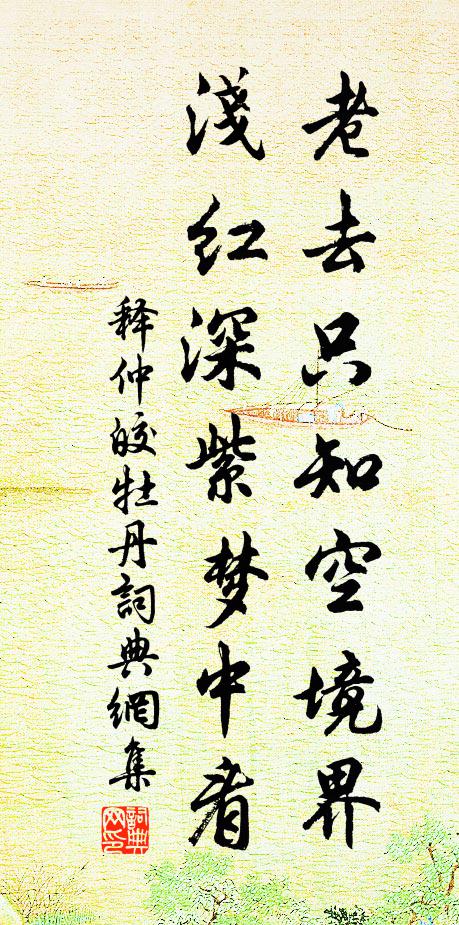 老去只知空境界
淺红深紫梦中看
释仲皎牡丹詞典網集
詞典网印